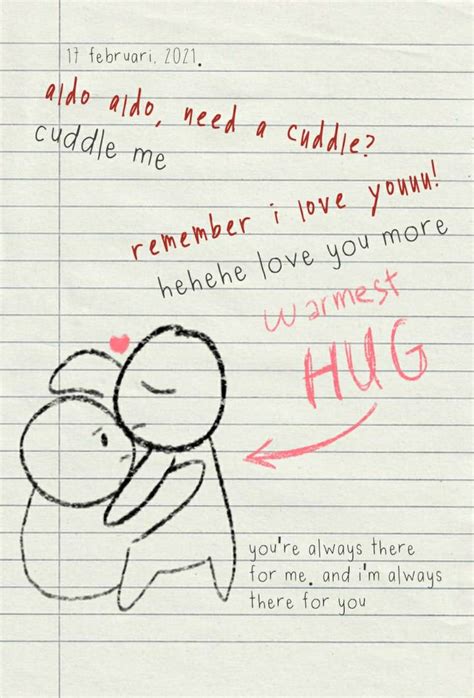 17 februari, 2021.
aldo aldo, need a cuddle?
cuddle me
remember i love youuu!
hehehe love you more
warmest
HUG
you're always there
for me. and i'm always
there for you